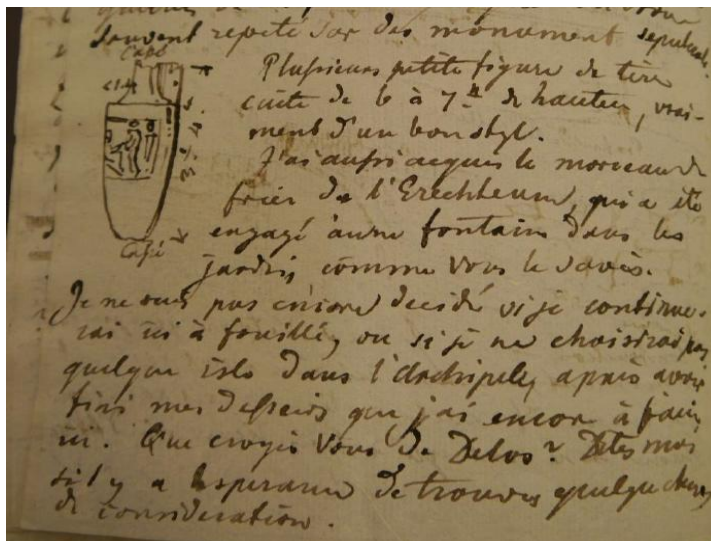 souvent repeté sur des monument sepulcals.
Capé
Plusieurs petite figure de tere
cuite de 6 à 7 de hauteur, vrai-
ment d'un bon styl.
J'ai aussi acquis le morceau de
frise de l'Erechteum, qui a été
engagé à une fontain dans les
jardin, comme vous le savés.
Capé
Je ne suis pas encore decidé si je continue-
rai ici à fouillé, ou si je ne choisirai pas
quelque isle dans l'Archipele, aprais avoir
fini mes desseins que j'ai encor à fair
ici. Que croyés vous de Delos? Dites moi
s'il y a esperance de trouver quelque chose
de consideration.